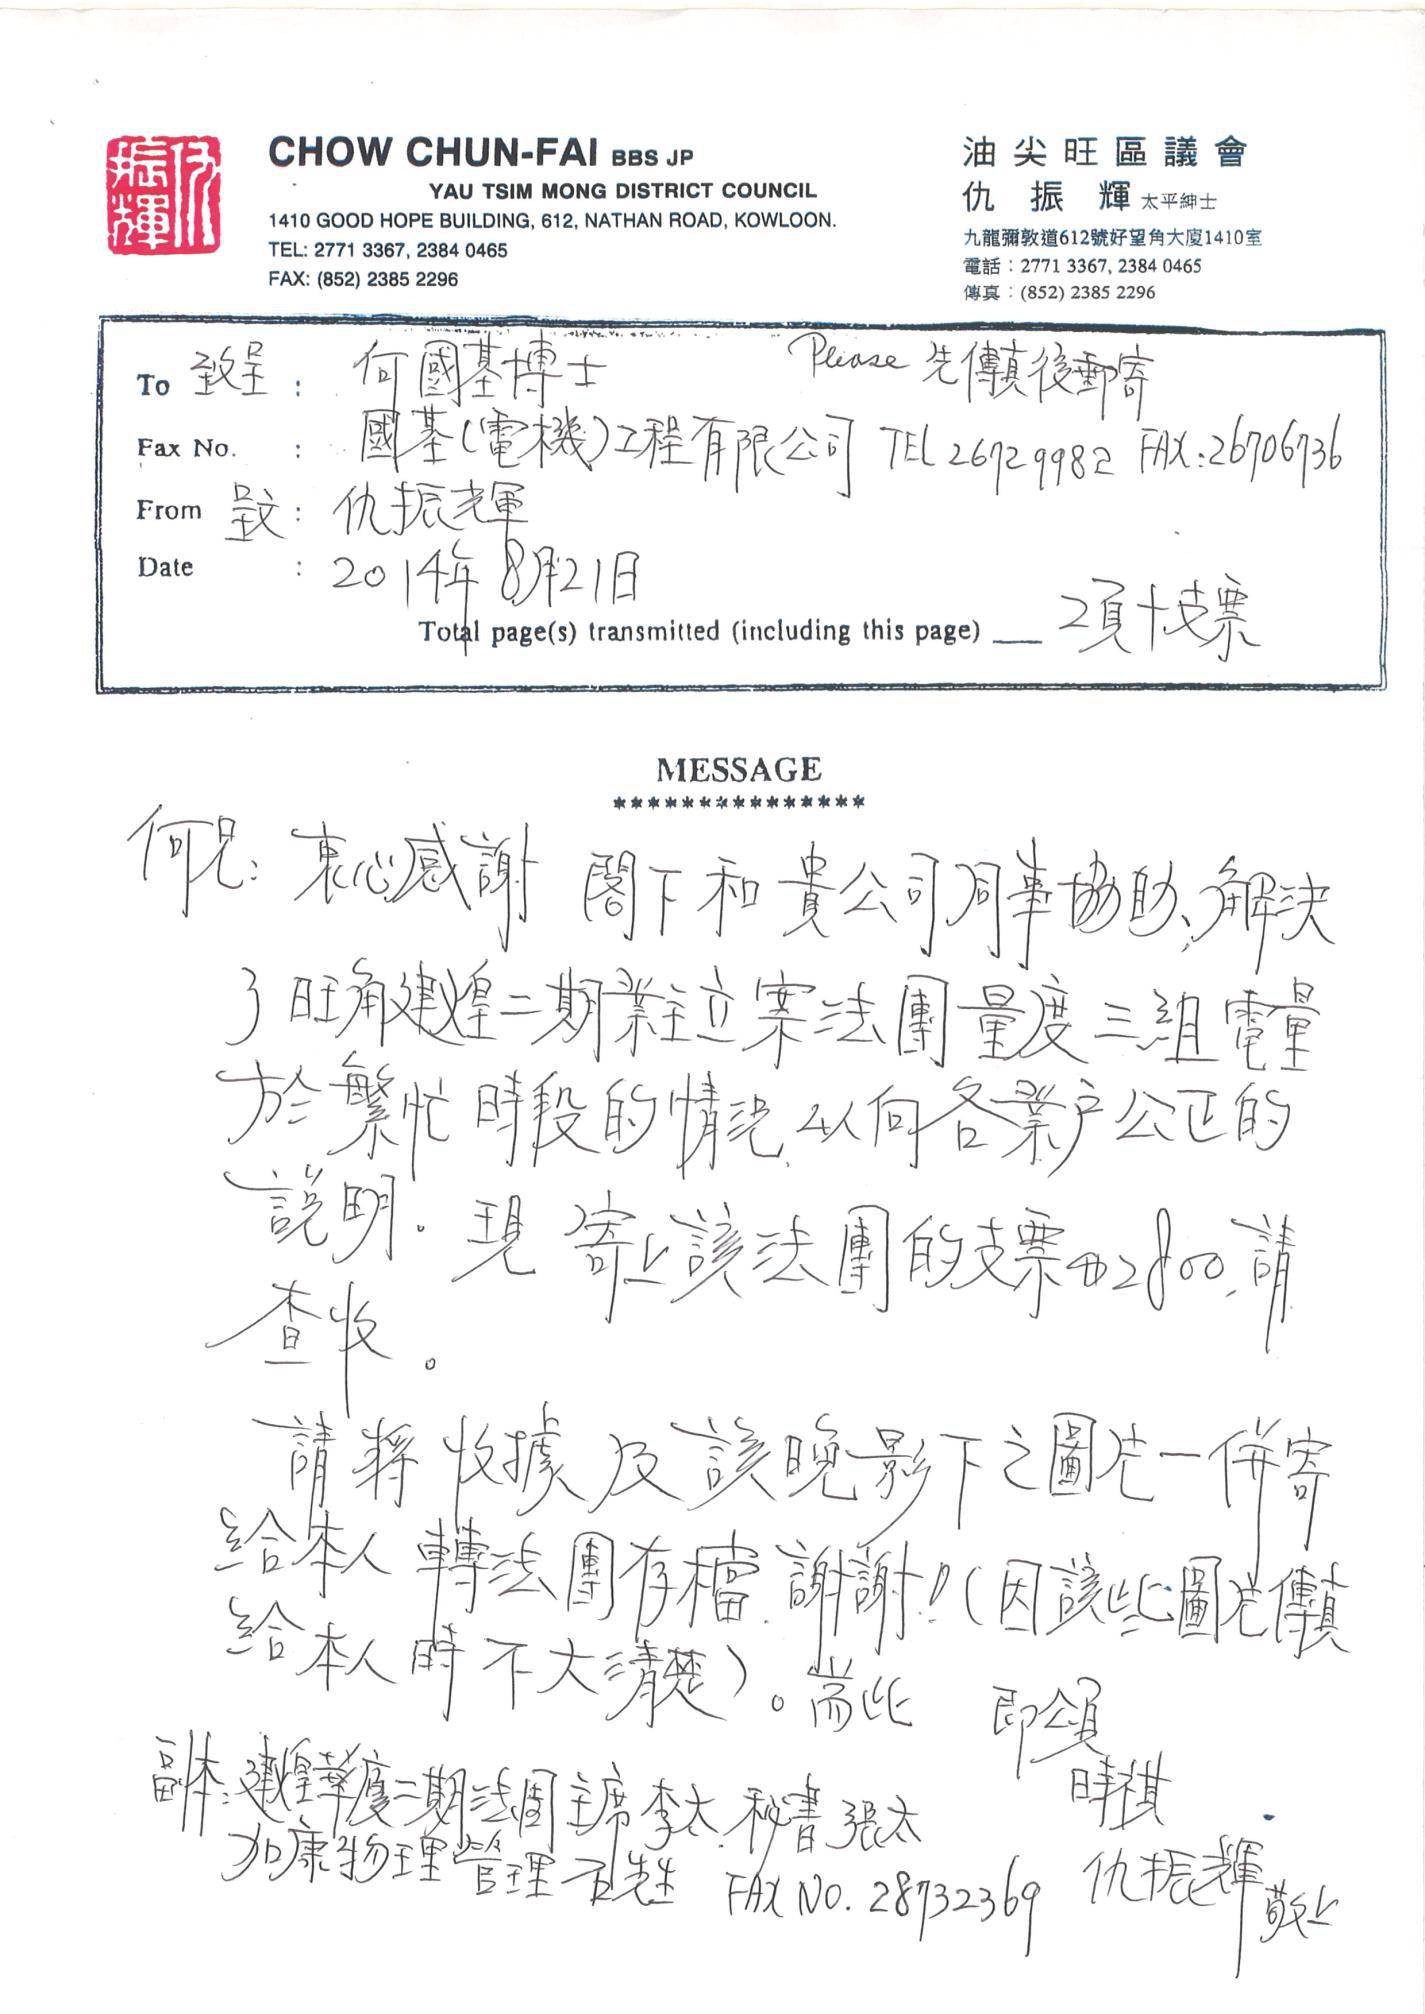 仇振輝
CHOW CHUN-FAI BBS JP
YAU TSIM MONG DISTRICT COUNCIL
1410 GOOD HOPE BUILDING, 612, NATHAN ROAD, KOWLOON.
TEL: 2771 3367, 2384 0465
FAX: (852) 2385 2296
油尖旺區議會
仇振輝 太平紳士
九龍彌敦道612號好望角大廈1410室
電話：2771 3367, 2384 0465
傳真：(852) 2385 2296
To 致呈 : 何國基博士 Please 先傳真後郵寄
Fax No. : 國基(電機)工程有限公司 TEL 26729982 FAX: 26706736
From 呈文 : 仇振輝
Date : 2014年8月21日
Total page(s) transmitted (including this page) 2頁+支票
MESSAGE
***************
何兄: 衷心感謝 閣下和貴公司同事協助、解決
了旺角建煌二期業主立案法團量度三組電量
於繁忙時段的情況,以向各業户公正的
說明。現寄上該法團的支票$2800,請
查收。
請將收據及該晚影下之圖片一併寄
給本人轉法團存檔,謝謝!(因該些圖片傳真
給本人時不大清楚)。耑此 即頌
時祺
副本:建煌華廈二期法團主席李太,秘書張太
加康物理管理 先生 FAX NO. 28732369
仇振輝 敬上